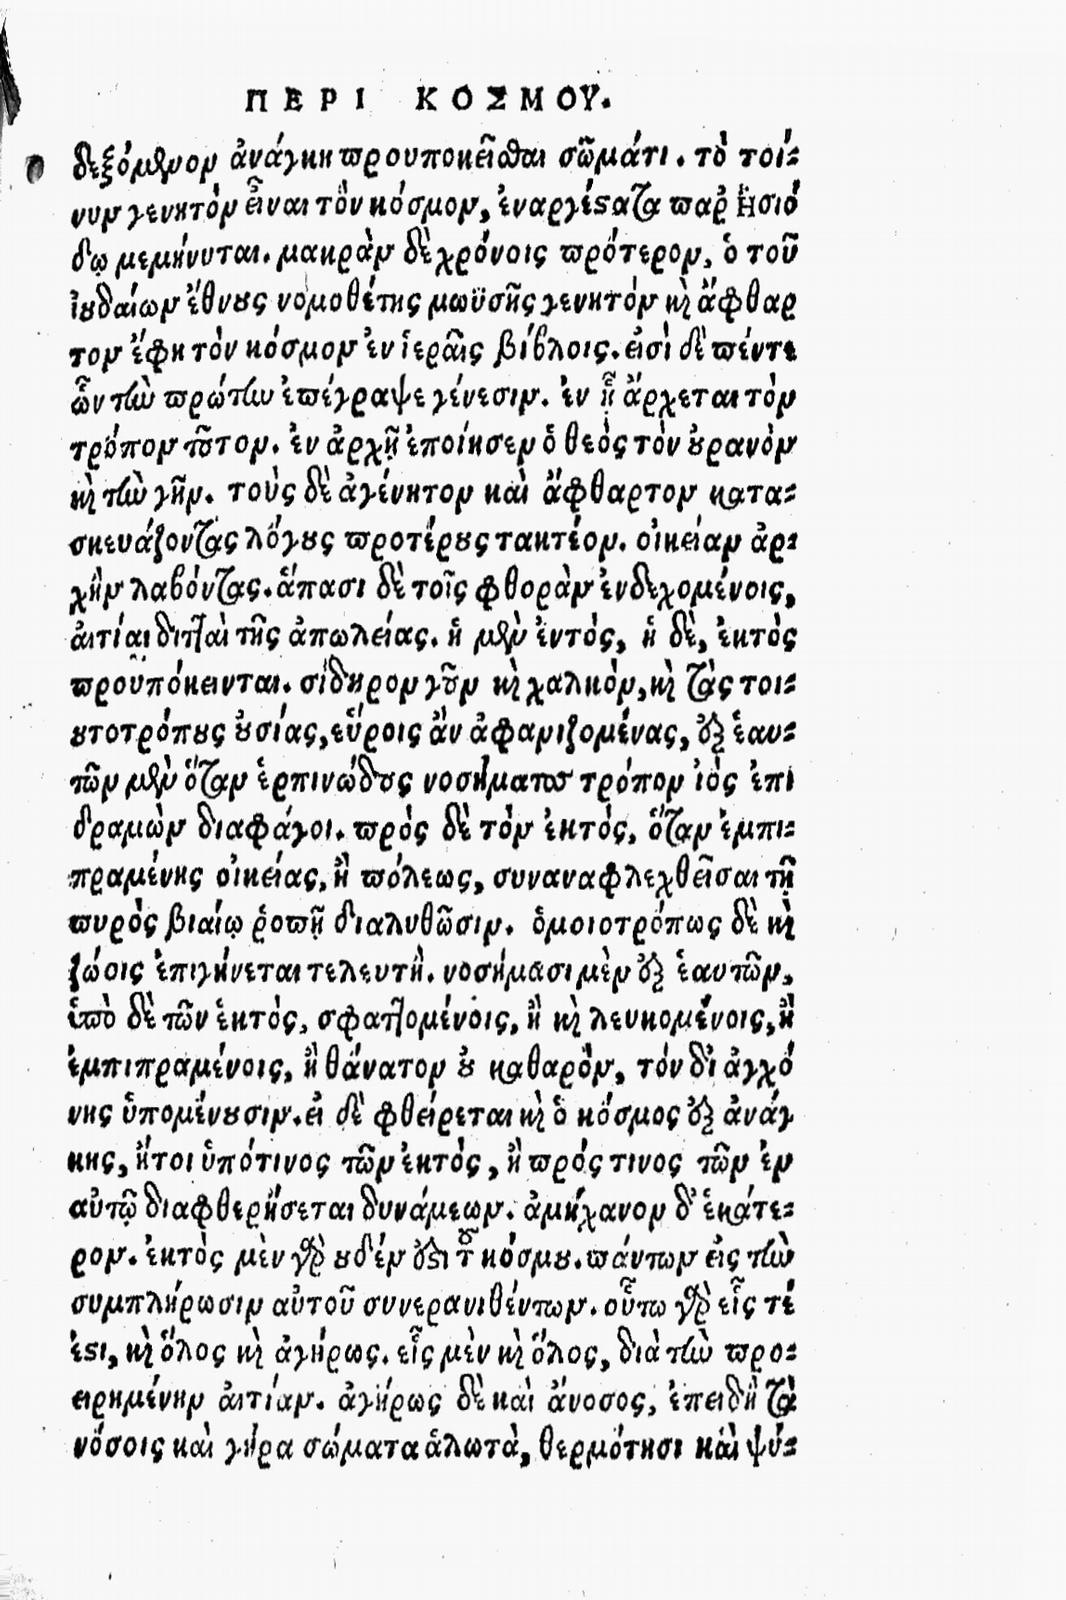 ΠΕΡΙ ΚΟΣΜΟΥ.
δεξόμενον ἀνάγκη προυποκεῖσθαι σώματι. τὸ τοί-
νυν γενητὸν εἶναι τὸν κόσμον, ἐναργέστατα παρ Ἡσιό
δῳ μεμήνυται. μακρὰν δὲ χρόνοις πρότερον, ὁ τοῦ
ἰουδαίων ἔθνους νομοθέτης μωϋσῆς γενητὸν καὶ ἄφθαρ
τον ἔφη τὸν κόσμον ἐν ἱεραῖς βίβλοις. εἰσὶ δὲ πέντε
ὧν τὴν πρώτην ἐπέγραψε γένεσιν. ἐν ᾗ ἄρχεται τὸν
τρόπον τοῦτον. ἐν ἀρχῇ ἐποίησεν ὁ θεὸς τὸν οὐρανὸν
καὶ τὴν γῆν. τοὺς δὲ ἀγένητον καὶ ἄφθαρτον κατα-
σκευάζοντας λόγους προτέρους τακτέον. οἰκείαν ἀρ-
χὴν λαβόντας. ἅπασι δὲ τοῖς φθορὰν ἐνδεχομένοις,
αἰτίαι διτταὶ τῆς ἀπωλείας. ἡ μὲν ἐντὸς, ἡ δὲ, ἐκτὸς
προϋπόκεινται. σίδηρον γοῦν καὶ χαλκὸν, καὶ τὰς τοι-
ουτοτρόπους οὐσίας, εὕροις ἂν ἀφανιζομένας, ἐξ ἑαυ-
τῶν μὲν ὅταν ἑρπινώδους νοσήματος τρόπον ἰὸς ἐπι
δραμὼν διαφάγοι. πρὸς δὲ τὸν ἐκτὸς, ὅταν ἐμπι-
πραμένης οἰκείας, ἢ πόλεως, συναναφλεχθεῖσαι τῇ
πυρὸς βιαίῳ ῥοπῇ διαλυθῶσιν. ὁμοιοτρόπως δὲ καὶ
ζώοις ἐπιγήνεται τελευτὴ. νοσήμασι μὲν ἐξ ἑαυτῶν,
ὑπὸ δὲ τῶν ἐκτὸς, σφαττομένοις, ἢ καὶ λευκομένοις, ἢ
ἐμπιπραμένοις, ἢ θάνατον οὐ καθαρὸν, τὸν δι ἀγχό
νης ὑπομένουσιν. εἰ δὲ φθείρεται καὶ ὁ κόσμος ἐξ ἀνάγ
κης, ἤτοι ὑπότινος τῶν ἐκτὸς, ἢ πρός τινος τῶν ἐν
αὐτῷ διαφθερήσεται δυνάμεων. ἀμήχανον δ' ἑκάτε-
ρον. ἐκτὸς μὲν γὰρ οὐδέν ἐστι τοῦ κόσμου. πάντων εἰς τὴν
συμπλήρωσιν αὐτοῦ συνερανιθέντων. οὕτω γὰρ εἷς τέ
ἐστι, καὶ ὅλος καὶ ἀγήρως. εἷς μὲν καὶ ὅλος, διὰ τὴν προ-
ειρημένην αἰτίαν. ἀγήρως δὲ καὶ ἄνοσος, ἐπειδὴ τὰ
νόσοις καὶ γήρα σώματα ἁλωτὰ, θερμότησι καὶ ψύ-